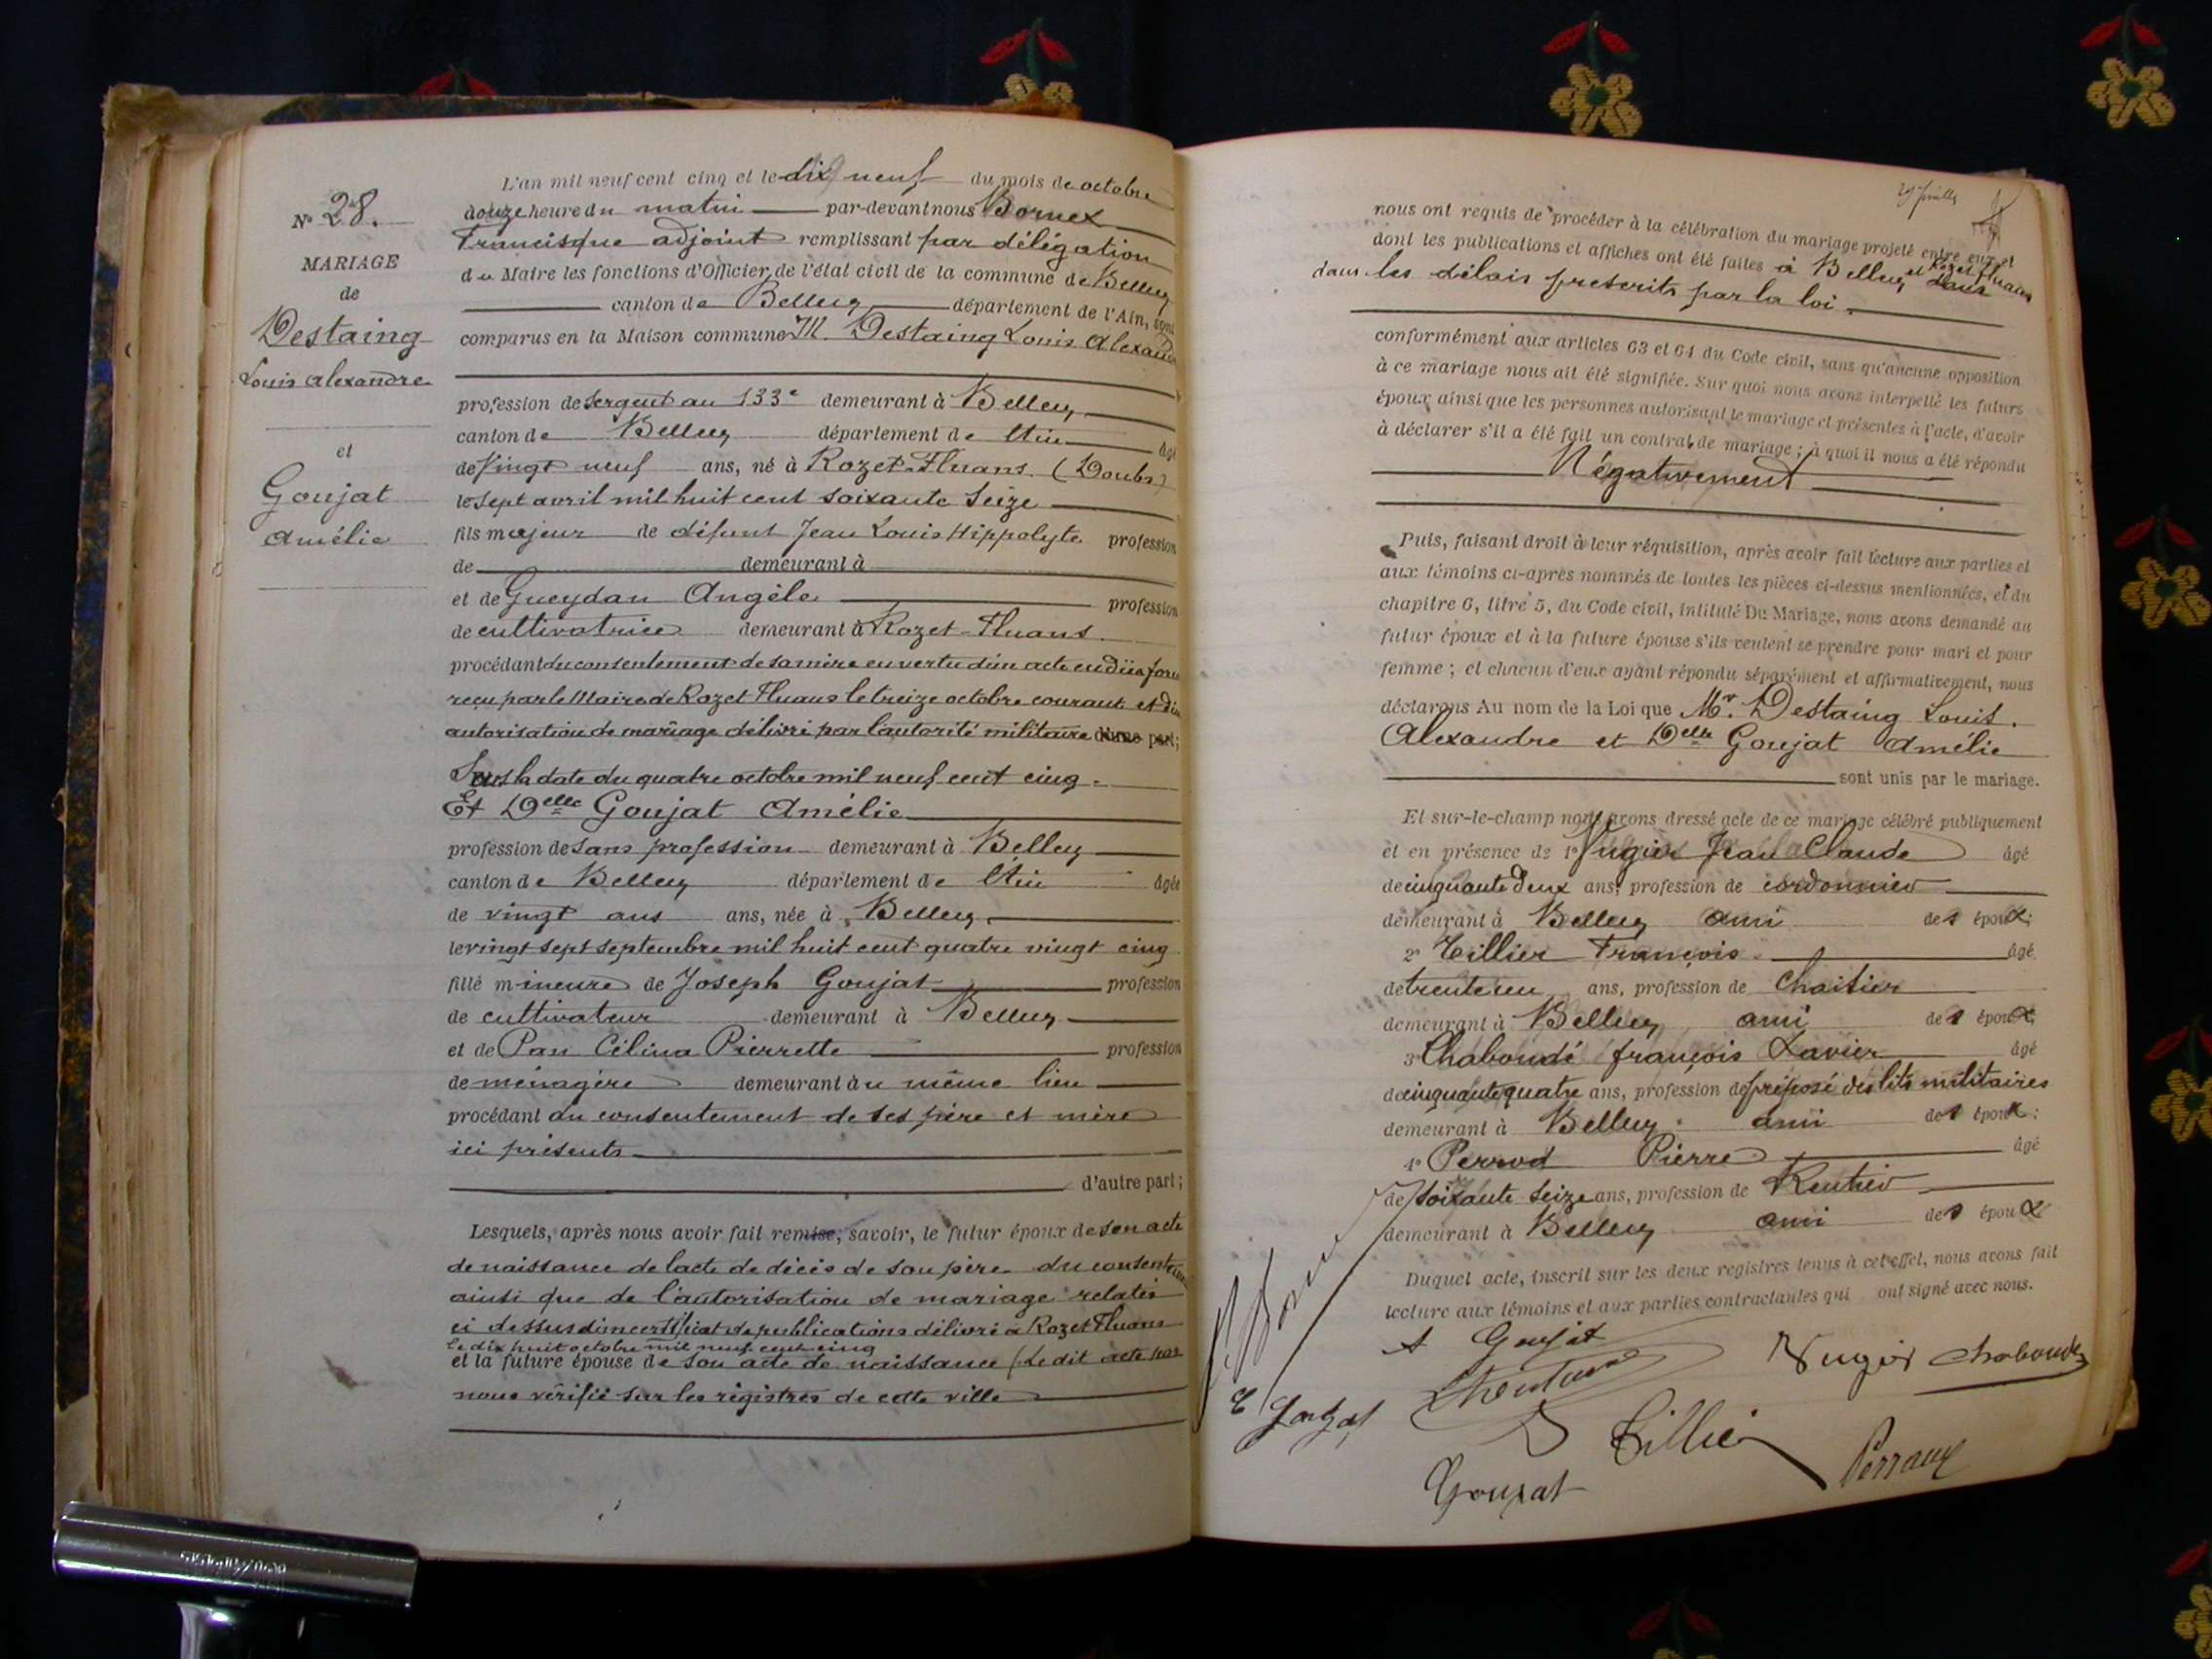 N° 28.
MARIAGE
de
Destaing
Louis Alexandre
et
Goujat
Amélie
L'an mil neuf cent cinq et le dix neuf du mois de octobre
à onze heure du matin par-devant nous Bornex
Francisque adjoint remplissant par délégation
du Maire les fonctions d'Officier de l'état civil de la commune de Belley
canton de Belley département de l'Ain, sont
comparus en la Maison commune M. Destaing Louis Alexandre
profession de Sergent au 133e demeurant à Belley
canton de Belley département de l'Ain âgé
de vingt neuf ans, né à Rozet-Fluans (Doubs)
le sept avril mil huit cent soixante seize
fils majeur de défunt Jean Louis Hippolyte profession
de demeurant à
et de Gueydan Angèle profession
de cultivatrice demeurant à Rozet-Fluans
procédant du consentement de sa mère en vertu d'un acte en due forme
reçu par le Maire de Rozet Fluans le treize octobre courant et d'une
autorisation de mariage délivré par l'autorité militaire d'une part;
Sous la date du quatre octobre mil neuf cent cinq.
Et Delle Goujat Amélie
profession de sans profession demeurant à Belley
canton de Belley département de l'Ain âgée
de vingt ans ans, née à Belley,
le vingt sept septembre mil huit cent quatre vingt cinq
fille mineure de Joseph Goujat profession
de cultivateur demeurant à Belley
et de Pan Célina Pierrette profession
de ménagère demeurant au même lieu
procédant du consentement de ses père et mère
ici présents
d'autre part;
Lesquels, après nous avoir fait remise, savoir, le futur époux de son acte
de naissance de l'acte de décès de son père du consentement
ainsi que de l'autorisation de mariage relatés
ci dessus d'un certificat de publications délivré à Rozet Fluans
le dix huit octobre mil neuf cent cinq
et la future épouse de son acte de naissance (Le dit acte par
nous vérifié sur les registres de cette ville
nous ont requis de procéder à la célébration du mariage projeté entre eux et
dont les publications et affiches ont été faites à Belley et Rozet Fluans dans
dans les délais prescrits par la loi.
conformément aux articles 63 et 64 du Code civil, sans qu'aucune opposition
à ce mariage nous ait été signifiée. Sur quoi nous avons interpellé les futurs
époux ainsi que les personnes autorisant le mariage et présentes à l'acte, d'avoir
à déclarer s'il a été fait un contrat de mariage; à quoi il nous a été répondu
Négativement
Puis, faisant droit à leur réquisition, après avoir fait lecture aux parties et
aux témoins ci-après nommés de toutes les pièces ci-dessus mentionnées, et du
chapitre 6, titre 5, du Code civil, intitulé Du Mariage, nous avons demandé au
futur époux et à la future épouse s'ils veulent se prendre pour mari et pour
femme; et chacun d'eux ayant répondu séparément et affirmativement, nous
déclarons Au nom de la Loi que Mr. Destaing Louis.
Alexandre et Delle Goujat Amélie
sont unis par le mariage.
Et sur-le-champ nous avons dressé acte de ce mariage célébré publiquement
et en présence de 1° Vugier Jean Claude âgé
de cinquante deux ans, profession de cordonnier
demeurant à Belley ami des époux;
2° Tillier François âgé
de trente un ans, profession de Chaisier
demeurant à Belley, ami des époux;
3° Chaboudé françois Xavier âgé
de cinquante quatre ans, profession de préposé des lits militaires
demeurant à Belley. ami des époux;
4° Perrod Pierre âgé
de soixante seize ans, profession de Rentier
demeurant à Belley ami des époux
Duquel acte, inscrit sur les deux registres tenus à cet effet, nous avons fait
lecture aux témoins et aux parties contractantes qui ont signé avec nous.
A Goujat
Vugier Chaboudé
Tillier
Goujat